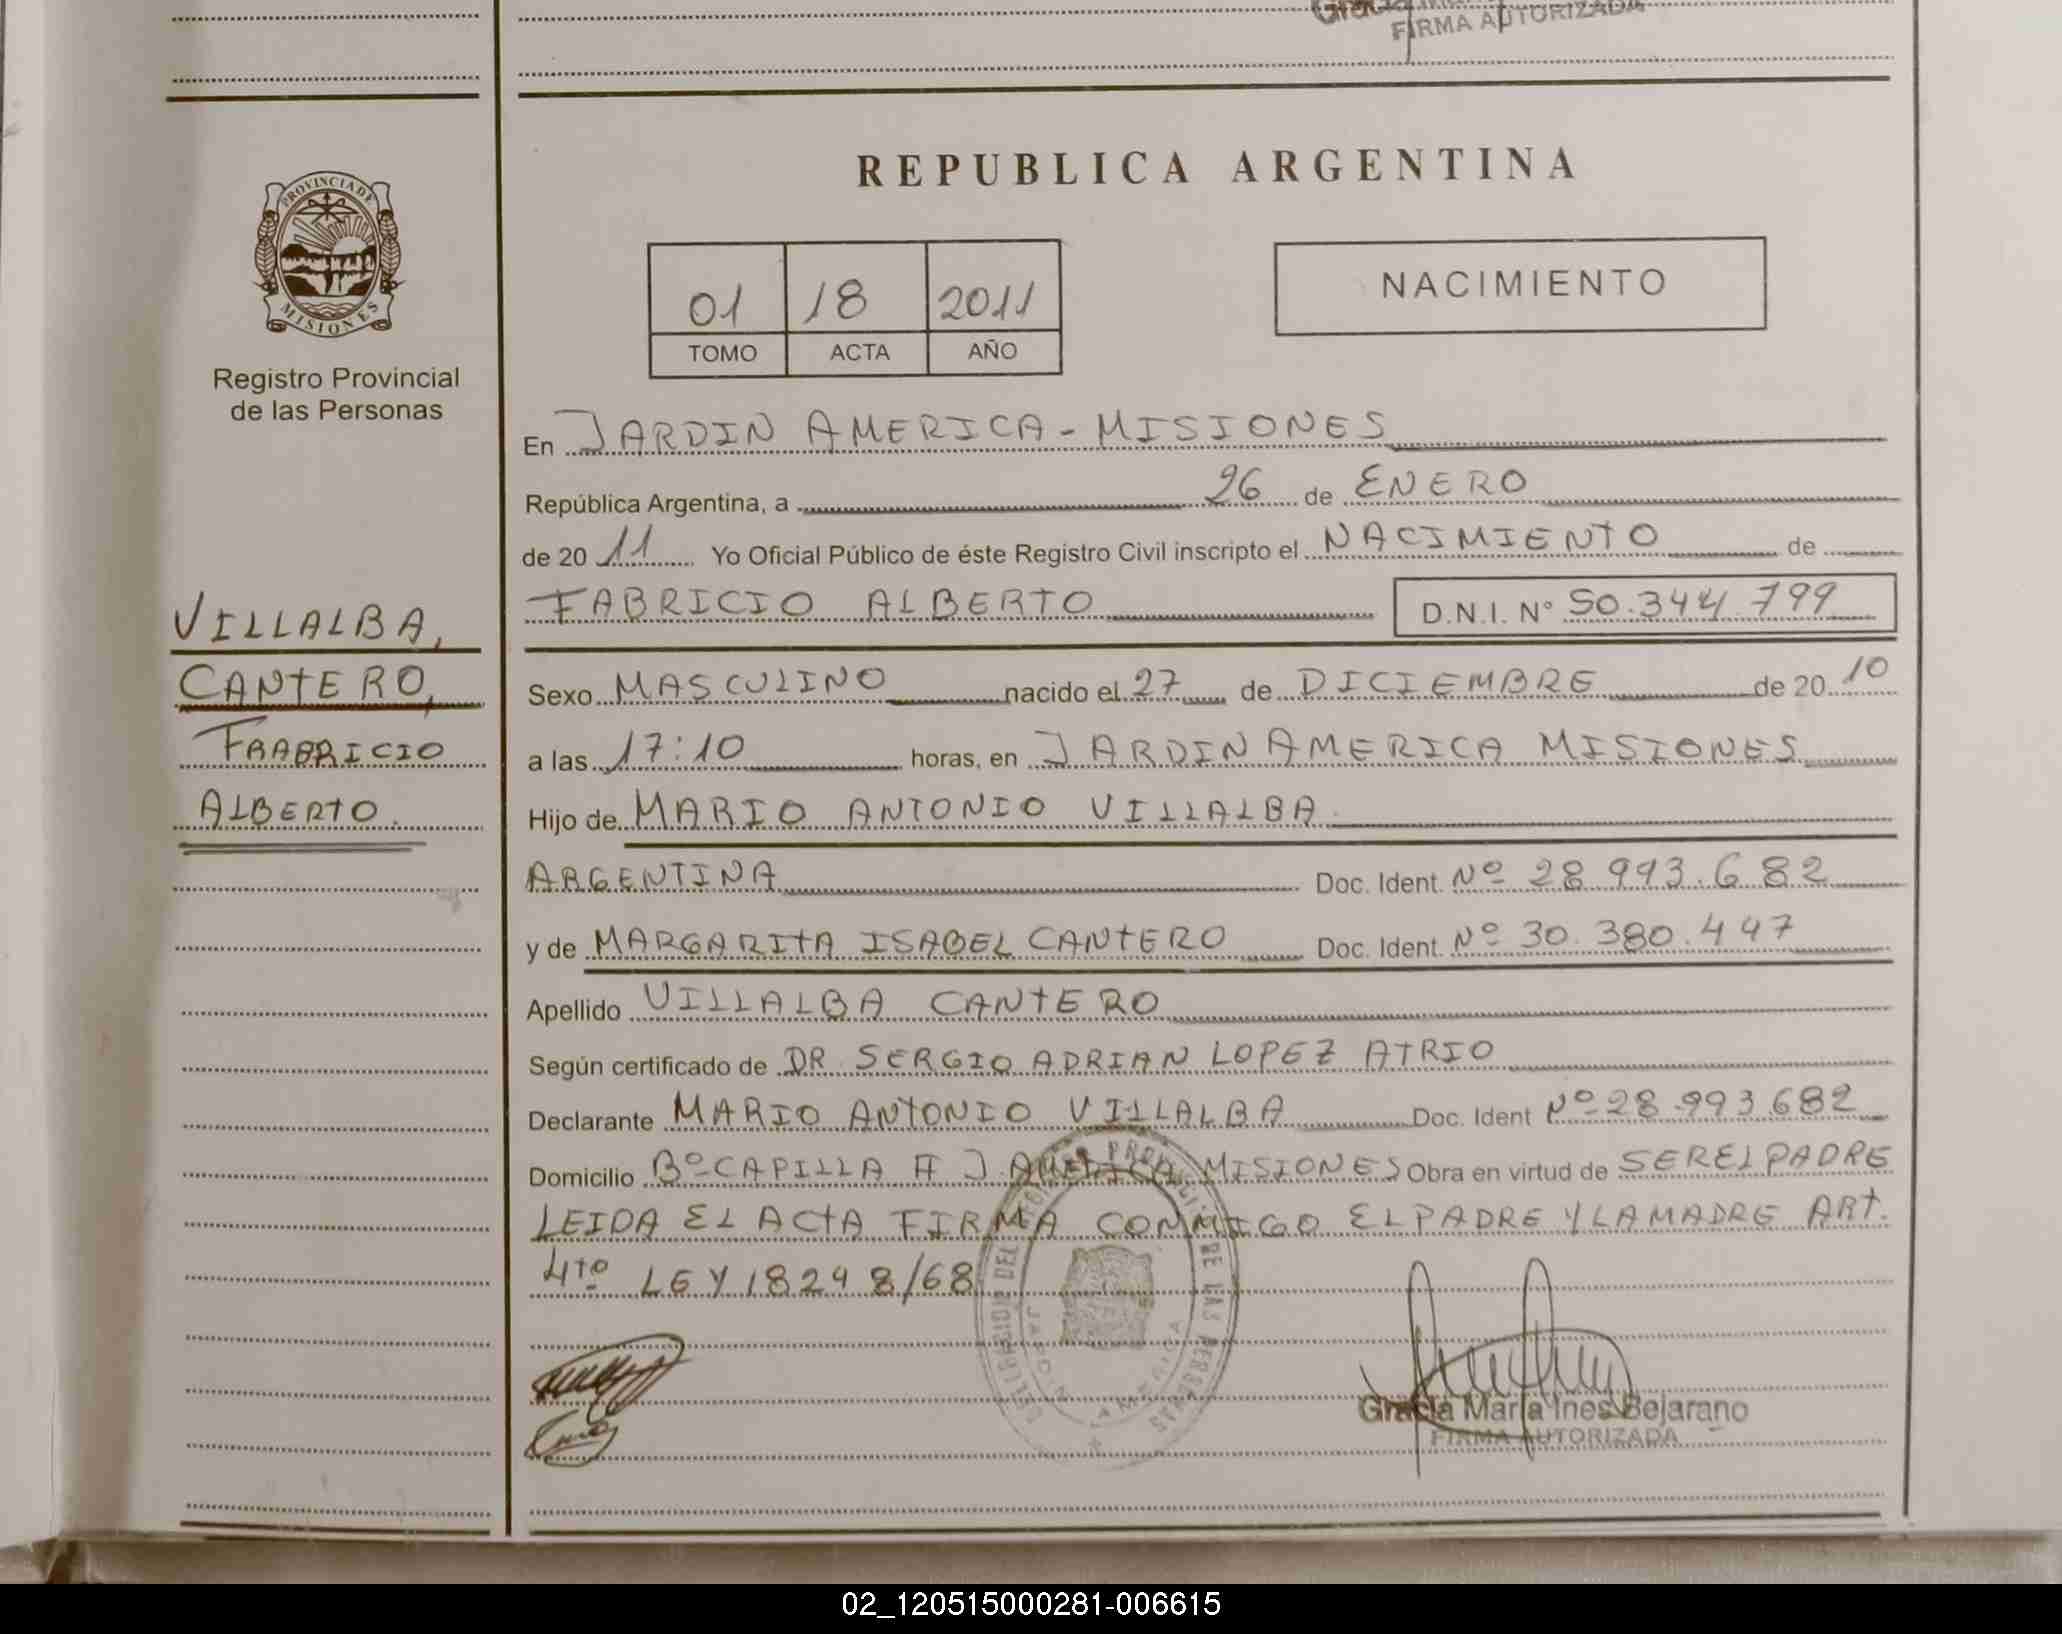 FIRMA AUTORIZADA
REPUBLICA ARGENTINA
PROVINCIA DE
MISIONES
Registro Provincial
de las Personas
01 18 2011
TOMO ACTA AÑO
NACIMIENTO
En JARDIN AMERICA - MISIONES
República Argentina, a 26 de ENERO
de 20 11 Yo Oficial Público de éste Registro Civil inscripto el NACIMIENTO de
FABRICIO ALBERTO D.N.I. N° 50.344.799
VILLALBA,
CANTERO,
FRABRICIO
ALBERTO.
Sexo MASCULINO nacido el 27 de DICIEMBRE de 20 10
a las 17:10 horas, en JARDIN AMERICA MISIONES
Hijo de MARIO ANTONIO VILLALBA
ARGENTINA Doc. Ident. Nº 28.993.682
y de MARGARITA ISABEL CANTERO Doc. Ident. Nº 30.380.447
Apellido VILLALBA CANTERO
Según certificado de DR. SERGIO ADRIAN LOPEZ ATRIO
Declarante MARIO ANTONIO VILLALBA Doc. Ident Nº 28.993.682
Domicilio Bº CAPILLA A J. AMERICA MISIONES Obra en virtud de SER EL PADRE
LEIDA EL ACTA FIRMA CONMIGO EL PADRE Y LA MADRE ART.
4to LEY 18248/68
DELEGACION DEL REGISTRO PROVINCIAL DE LAS PERSONAS
JARDIN AMERICA
Gracia María Ines Bejarano
FIRMA AUTORIZADA
02_120515000281-006615